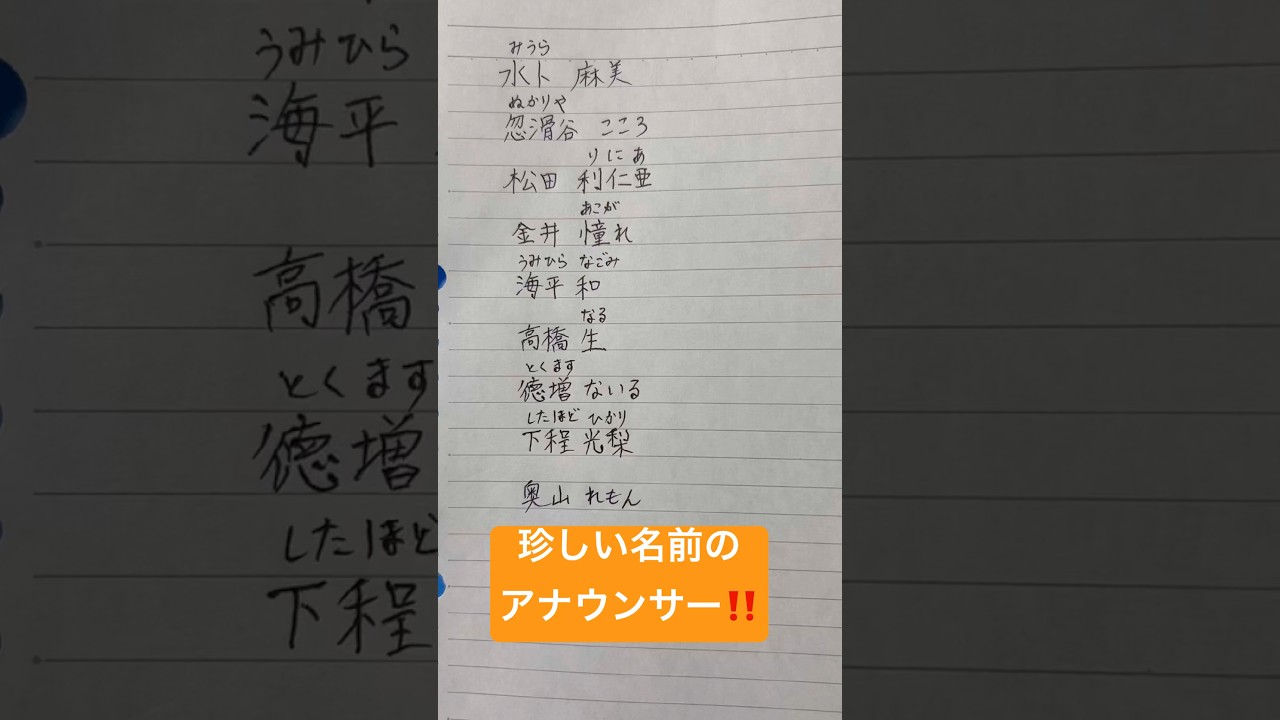 みうら
水卜 麻美
ぬかりや
忽滑谷 こころ
りにあ
松田 利仁亜
あこが
金井 憧れ
うみひら なごみ
海平 和
なる
高橋 生
とくます
徳増 ないる
したほど ひかり
下程 光梨
奥山 れもん
珍しい名前の
アナウンサー‼️
うみひら
海平
高橋
とくます
徳増
したほど
下程